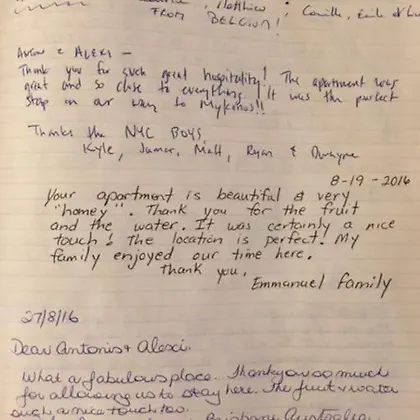 Matthew, Camille, Emile
FROM BELGIUM!
ALEXI —
Thank you for such great hospitality! The apartment was
great and so close to everything. It was the perfect
stop on our way to Mykonos!!
Thanks the NYC BOYS,
Kyle, Jamar, Matt, Ryan & Dwayne
8-19-2016
Your apartment is beautiful & very
"homey". Thank you for the fruit
and the water. It was certainly a nice
touch! The location is perfect! My
family enjoyed our time here.
Thank you,
Emmanuel family
27/8/16
Dear Antonis & Alexi.
What a fabulous place. Thankyou so much
for allowing us to stay here. The fruit & water
such a nice touch too.
Brisbane Australia